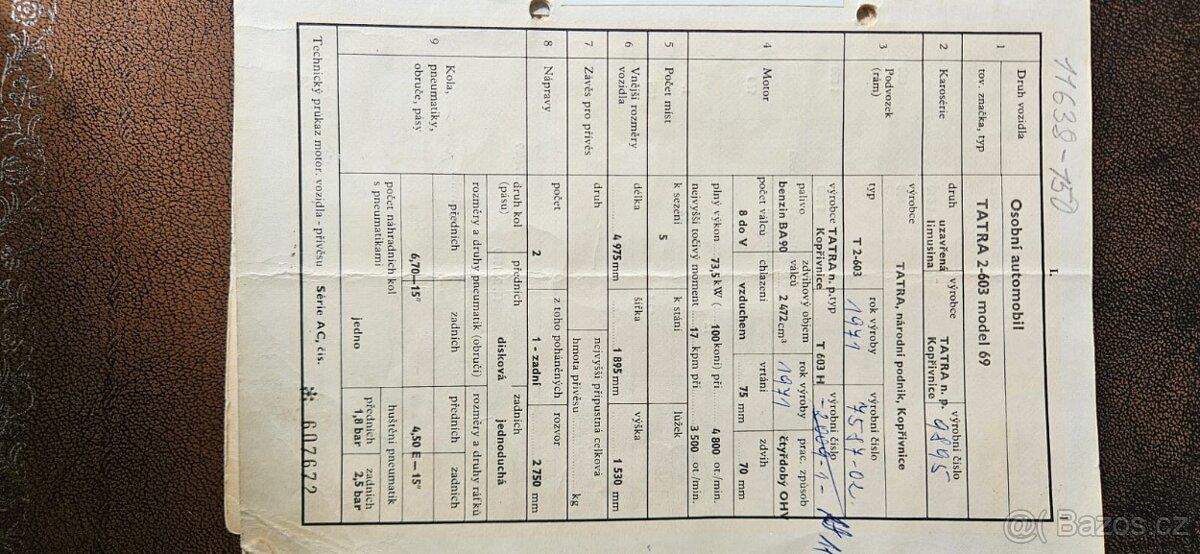 11638-150
I.
1
Druh vozidla
Osobní automobil
tov. značka, typ
TATRA 2-603 model 69
2
Karosérie
druh
uzavřená
limusina
výrobce
TATRA n. p.
Kopřivnice
výrobní číslo
9895
3
Podvozek
(rám)
výrobce
TATRA, národní podnik, Kopřivnice
typ
T 2-603
rok výroby
1971
výrobní číslo
7587-02
4
Motor
výrobce TATRA n. p.
Kopřivnice
typ
T 603 H
výrobní číslo
palivo
benzin BA 90
zdvihový objem
válců 2 472 cm³
rok výroby
1971
prac. způsob
čtyřdobý OHV
počet válců
8 do V
chlazení
vzduchem
vrtání
75 mm
zdvih
70 mm
plný výkon 73,5 kW ( 100 koní) při 4 800 ot./min.
nejvyšší točivý moment 17 kpm při 3 500 ot./min.
5
Počet míst
k sezení
5
k stání
lůžek
6
Vnější rozměry
vozidla
délka
4 975 mm
šířka
1 895 mm
výška
1 530 mm
7
Závěs pro přívěs
druh
nejvyšší přípustná celková
hmota přívěsu kg
8
Nápravy
počet
2
z toho poháněných
1 - zadní
rozvor
2 750 mm
9
Kola,
pneumatiky,
obruče, pásy
druh kol
(pásu)
předních
disková
zadních
jednoduchá
rozměry a druhy pneumatik (obručí)
rozměry a druhy ráfků
předních
zadních
předních
zadních
6,70—15"
4,50 E—15"
počet náhradních kol
s pneumatikami
jedno
huštění pneumatik
předních
1,8 bar
zadních
2,5 bar
Technický průkaz motor. vozidla - přívěsu Série AC, čís. * 607672
Bazos.cz